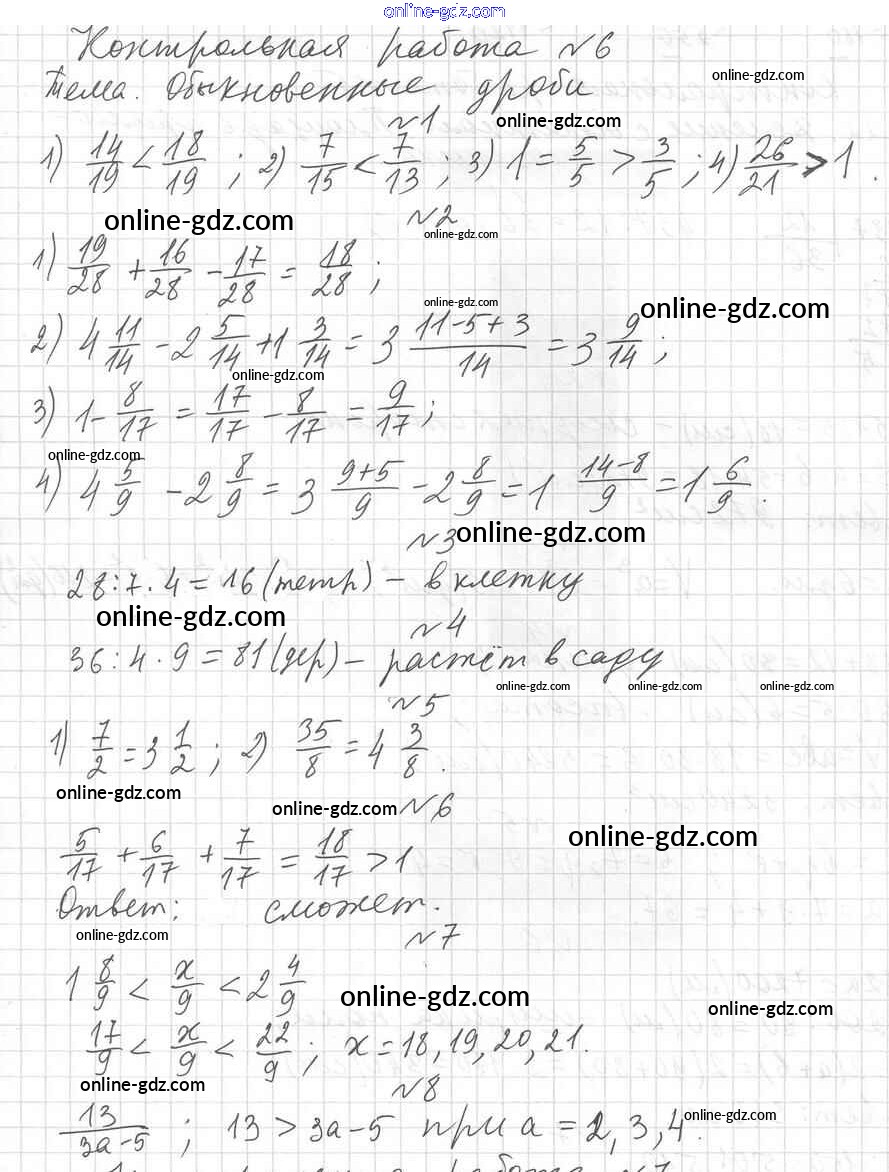 online-gdz.com
Контрольная работа №6
online-gdz.com
Тема. Обыкновенные дроби
№1 online-gdz.com
1) 14/19 < 18/19 ; 2) 7/15 < 7/13 ; 3) 1 = 5/5 > 3/5 ; 4) 26/21 > 1 .
online-gdz.com №2
online-gdz.com
1) 19/28 + 16/28 - 17/28 = 18/28 ;
online-gdz.com online-gdz.com
2) 4 11/14 - 2 5/14 + 1 3/14 = 3 (11-5+3)/14 = 3 9/14 ;
online-gdz.com
3) 1 - 8/17 = 17/17 - 8/17 = 9/17 ;
online-gdz.com
4) 4 5/9 - 2 8/9 = 3 (9+5)/9 - 2 8/9 = 1 (14-8)/9 = 1 6/9 .
№3 online-gdz.com
28 : 7 · 4 = 16 (тетр) – в клетку
online-gdz.com №4
36 : 4 · 9 = 81 (дер) – растёт в саду
online-gdz.com online-gdz.com online-gdz.com
№5
1) 7/2 = 3 1/2 ; 2) 35/8 = 4 3/8 .
online-gdz.com
online-gdz.com №6
online-gdz.com
5/17 + 6/17 + 7/17 = 18/17 > 1
Ответ: сможет.
online-gdz.com №7
1 8/9 < x/9 < 2 4/9
online-gdz.com online-gdz.com
17/9 < x/9 < 22/9 ; x = 18, 19, 20, 21.
online-gdz.com №8
online-gdz.com
13/(3a-5) ; 13 > 3a-5 при a = 2, 3, 4.